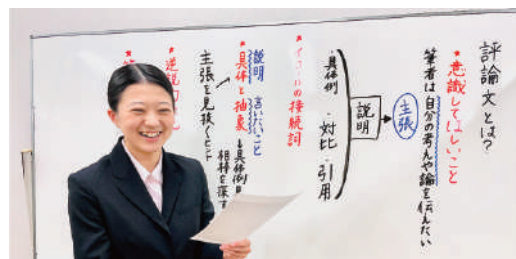 評論文とは?
*意識してほしいこと
筆者は自分の考えや論を伝えたい
主張
説明
・具体例 ・対比 ・引用
の接続詞
説明 言いたいこと
*具体と抽象
↓具体例は
相棒を探す
主張を見抜くヒント
*逆説